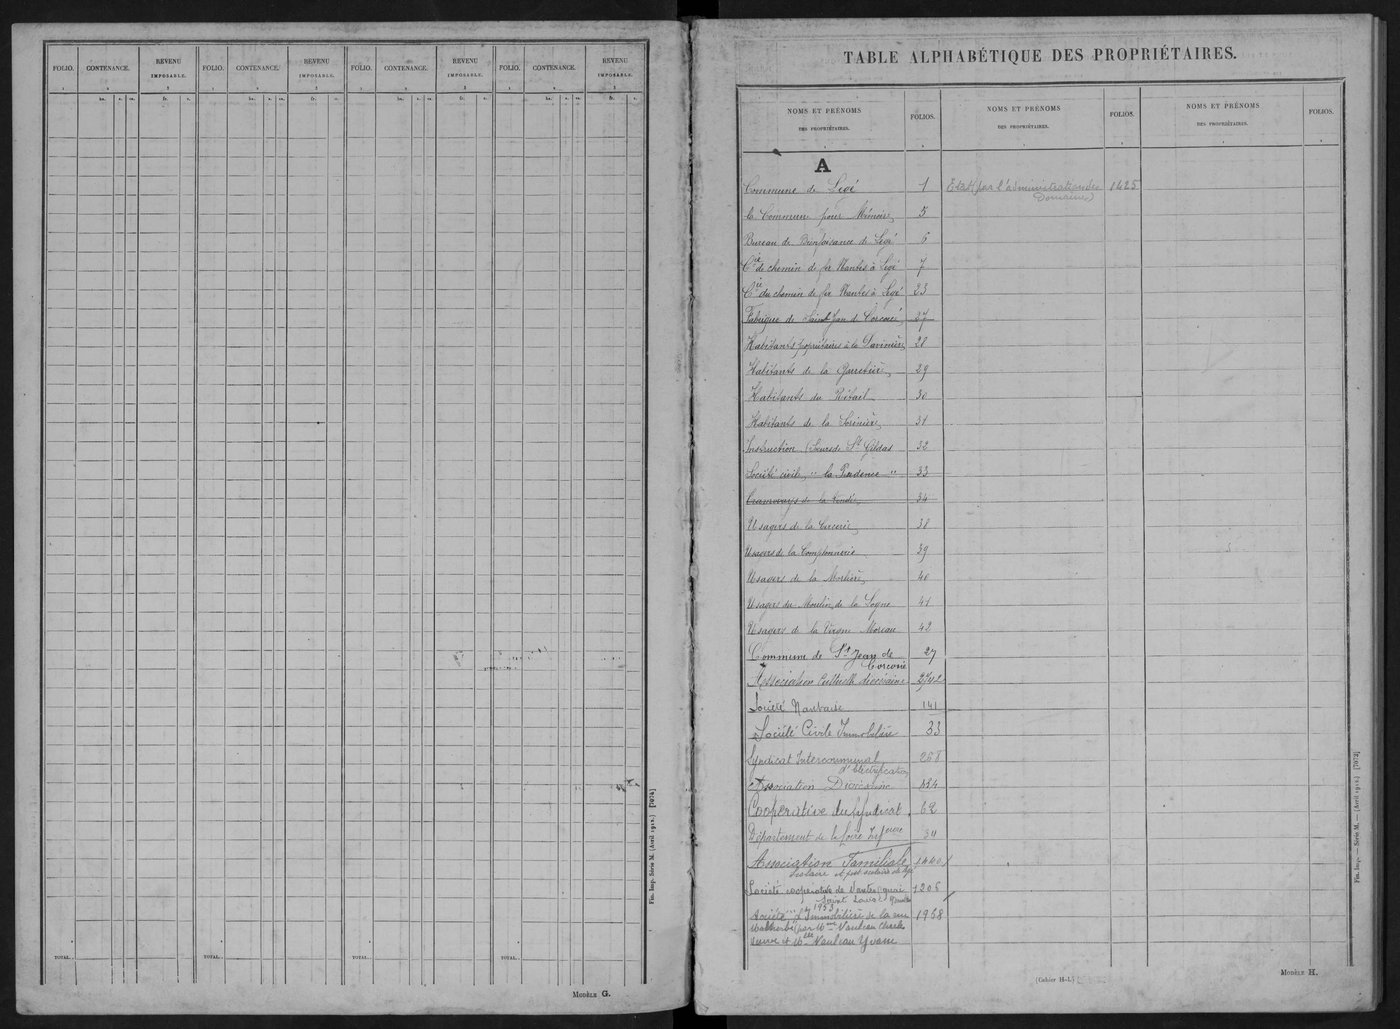 FOLIO. CONTENANCE. REVENU IMPOSABLE. FOLIO. CONTENANCE. REVENU IMPOSABLE. FOLIO. CONTENANCE. REVENU IMPOSABLE. FOLIO. CONTENANCE. REVENU IMPOSABLE.
ha. a. ca. fr. c. ha. a. ca. fr. c. ha. a. ca. fr. c. ha. a. ca. fr. c.
TOTAL. TOTAL. TOTAL. TOTAL.
Fin. Imp. Série M. (Avril 1912.) [7074]
MODÈLE G.
TABLE ALPHABÉTIQUE DES PROPRIÉTAIRES.
NOMS ET PRÉNOMS DES PROPRIÉTAIRES. FOLIOS. NOMS ET PRÉNOMS DES PROPRIÉTAIRES. FOLIOS. NOMS ET PRÉNOMS DES PROPRIÉTAIRES. FOLIOS.
A
Commune de Legé 1 Etat (par l'administration des Domaines) 1425
la Commune pour Mémoire 5
Bureau de Bienfaisance de Legé 6
Cie de chemin de fer Nantes à Legé 7
Cie du chemin de fer Nantes à Legé 23
Fabrique de Saint Jean de Corcoué 27
Habitants propriétaires à la 28
Habitants de la 29
Habitants du Retail 30
Habitants de la 31
Instruction (Sœurs de St Gildas 32
Société civile "la Prudence" 33
Tramways de la Vendée 34
Usagers de la 38
Usagers de la 39
Usagers de la 40
Usagers du Moulin de la Logne 41
Usagers de la Vergne Moreau 42
Commune de St Jean de Corcoué 27
Association Cultuelle diocésaine 2742
Société Nantaise 141
Société Civile Immobilière 33
Syndicat Intercommunal d'électrification 268
Association Diocésaine 824
Coopérative du Syndicat 62
Département de la Loire Infeure 34
Association Familiale 1440
scolaire et post scolaire de Legé
Société coopérative de Nantes quai 1206
Saint Louis
1953
Société "l'Immobilière de la rue 1958
Malherbe" (par Mme Vauleau Charles
veuve et Mlle Vauleau Yvonne
(Cahier H-I.)
MODÈLE H.
Fin. Imp. — Série M. — (Avril 1912.) [7073]